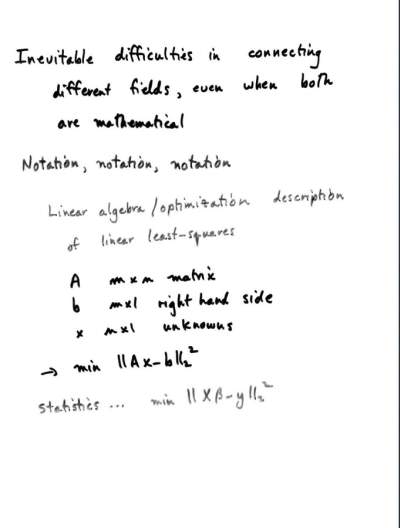 Inevitable difficulties in connecting
different fields, even when both
are mathematical
Notation, notation, notation
Linear algebra/optimization description
of linear least-squares
A m x n matrix
b mx1 right hand side
x nx1 unknowns
→ min ||Ax-b||₂²
Statistics ... min ||Xβ-y||₂²